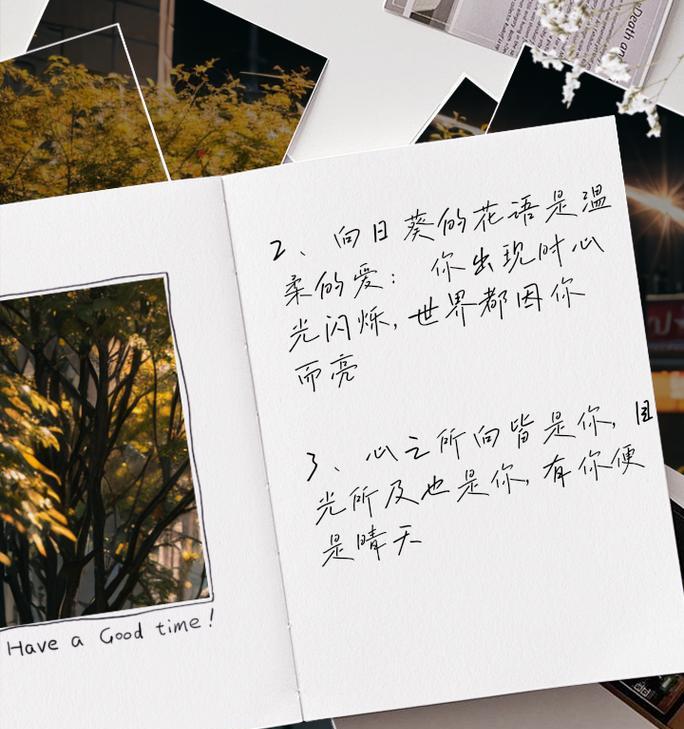 Death an
2、向日葵的花语是温
柔的爱：你出现时心
光闪烁，世界都因你
而亮
3、心之所向皆是你，目
光所及也是你，有你便
是晴天
Have a Good time!